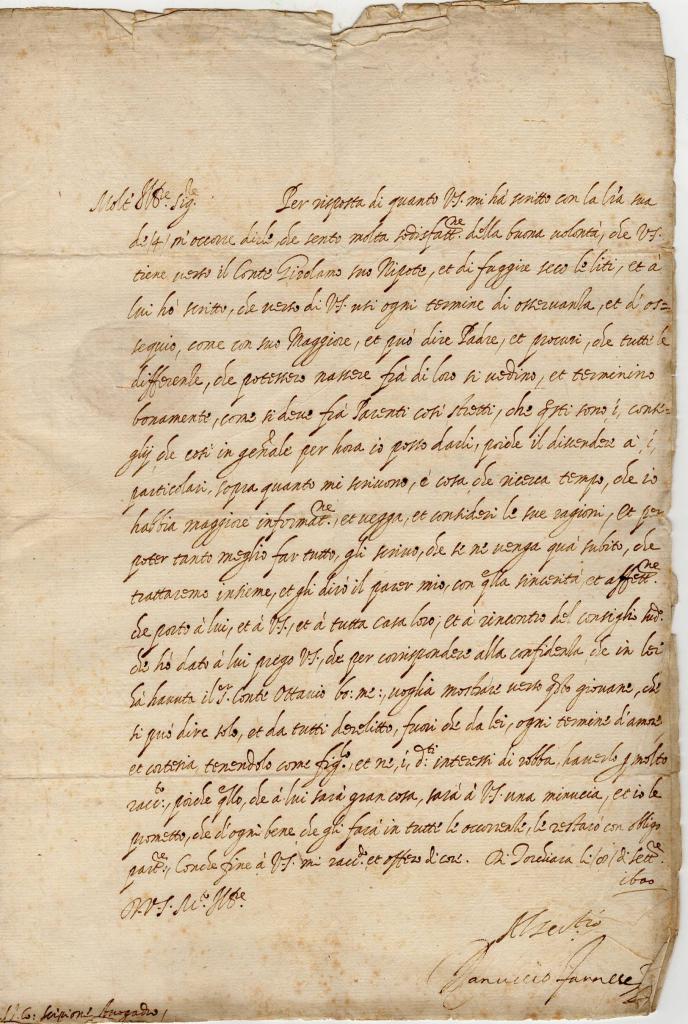 Molt' Ill.re Sig.re Per risposta di quanto V.S. mi hà scritto con la l̃ra sua
de /4/ m'occorre dirle, che sento molta sodisfatt.ne della buona volontà, che V.S.
tiene verso il Conte Girolamo suo Nipote, et di fuggire seco le liti, et à
lui hò scritto, che verso di V.S. usi ogni termine di osservanza, et d'os=
sequio, come con suo Maggiore, et può dire Padre, et procuri, che tutte le
differenze, che potessero nascere frà di loro si vedino, et terminino
bonamente, come si deve frà Parenti così stretti, che q̃sti sono i, conse=
glij, che così in gẽñale per hora io posso darli, poiche il discendere à, i,
particolari, sopra quanto mi scrivono, è cosa, che ricerca tempo, che io
habbia maggiore informat.ne, et vegga, et consideri le sue ragioni, Et per
poter tanto meglio far tutto, gli scrivo, che se ne venga quà subito, che
trattaremo insieme, et gli dirò il parer mio, con q̃lla sincerità, et affett.ne
che porto à lui, et à V.S., et à tutta casa loro, et à rincontro del consiglio sud.o
che hò dato à lui prego V.S., che per corrispondere alla confidenza, che in lei
hà havuta il S.r Conte Ottavio bo: me:, voglia mostrare verso q̃sto giovane, che
si può dire solo, et da tutti derelitto, fuori che da lei, ogni termine d'amore
et cortesia, tenendolo come figl.o, et ne, i, d.ti interessi di robba, haverlo p molto
racc.to, poiche q̃llo, che à lui sarà gran cosa, sarà à V.S. una minuccia, et io le
prometto, che d'ogni bene, che gli farà in tutte le occorrenze, le restarò con obligo
par.re, Con che fine à V.S. mi racc.do, et offero di core. Di Torchiara li /8/ di Sett.re
1600
D. V.S. M.to Ill.re
Ranuccio Farnese
S.r Co: Scipione Avogadro,